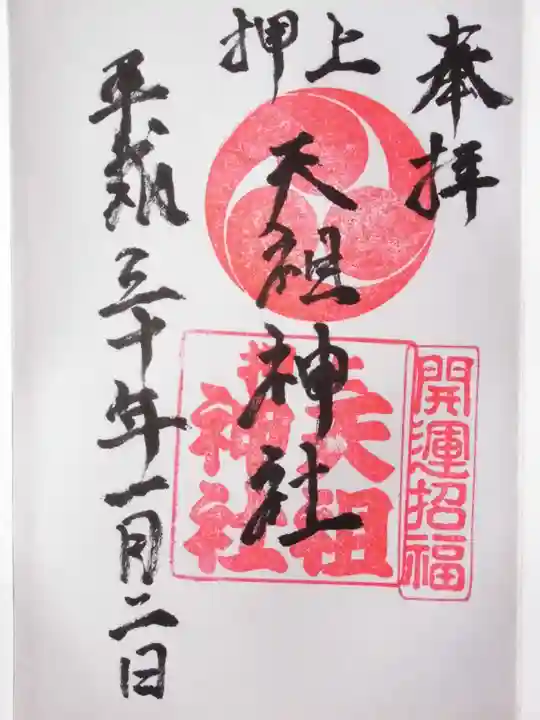 奉拝
開運招福
押上
天祖神社
押上天祖神社
平成三十年一月二日